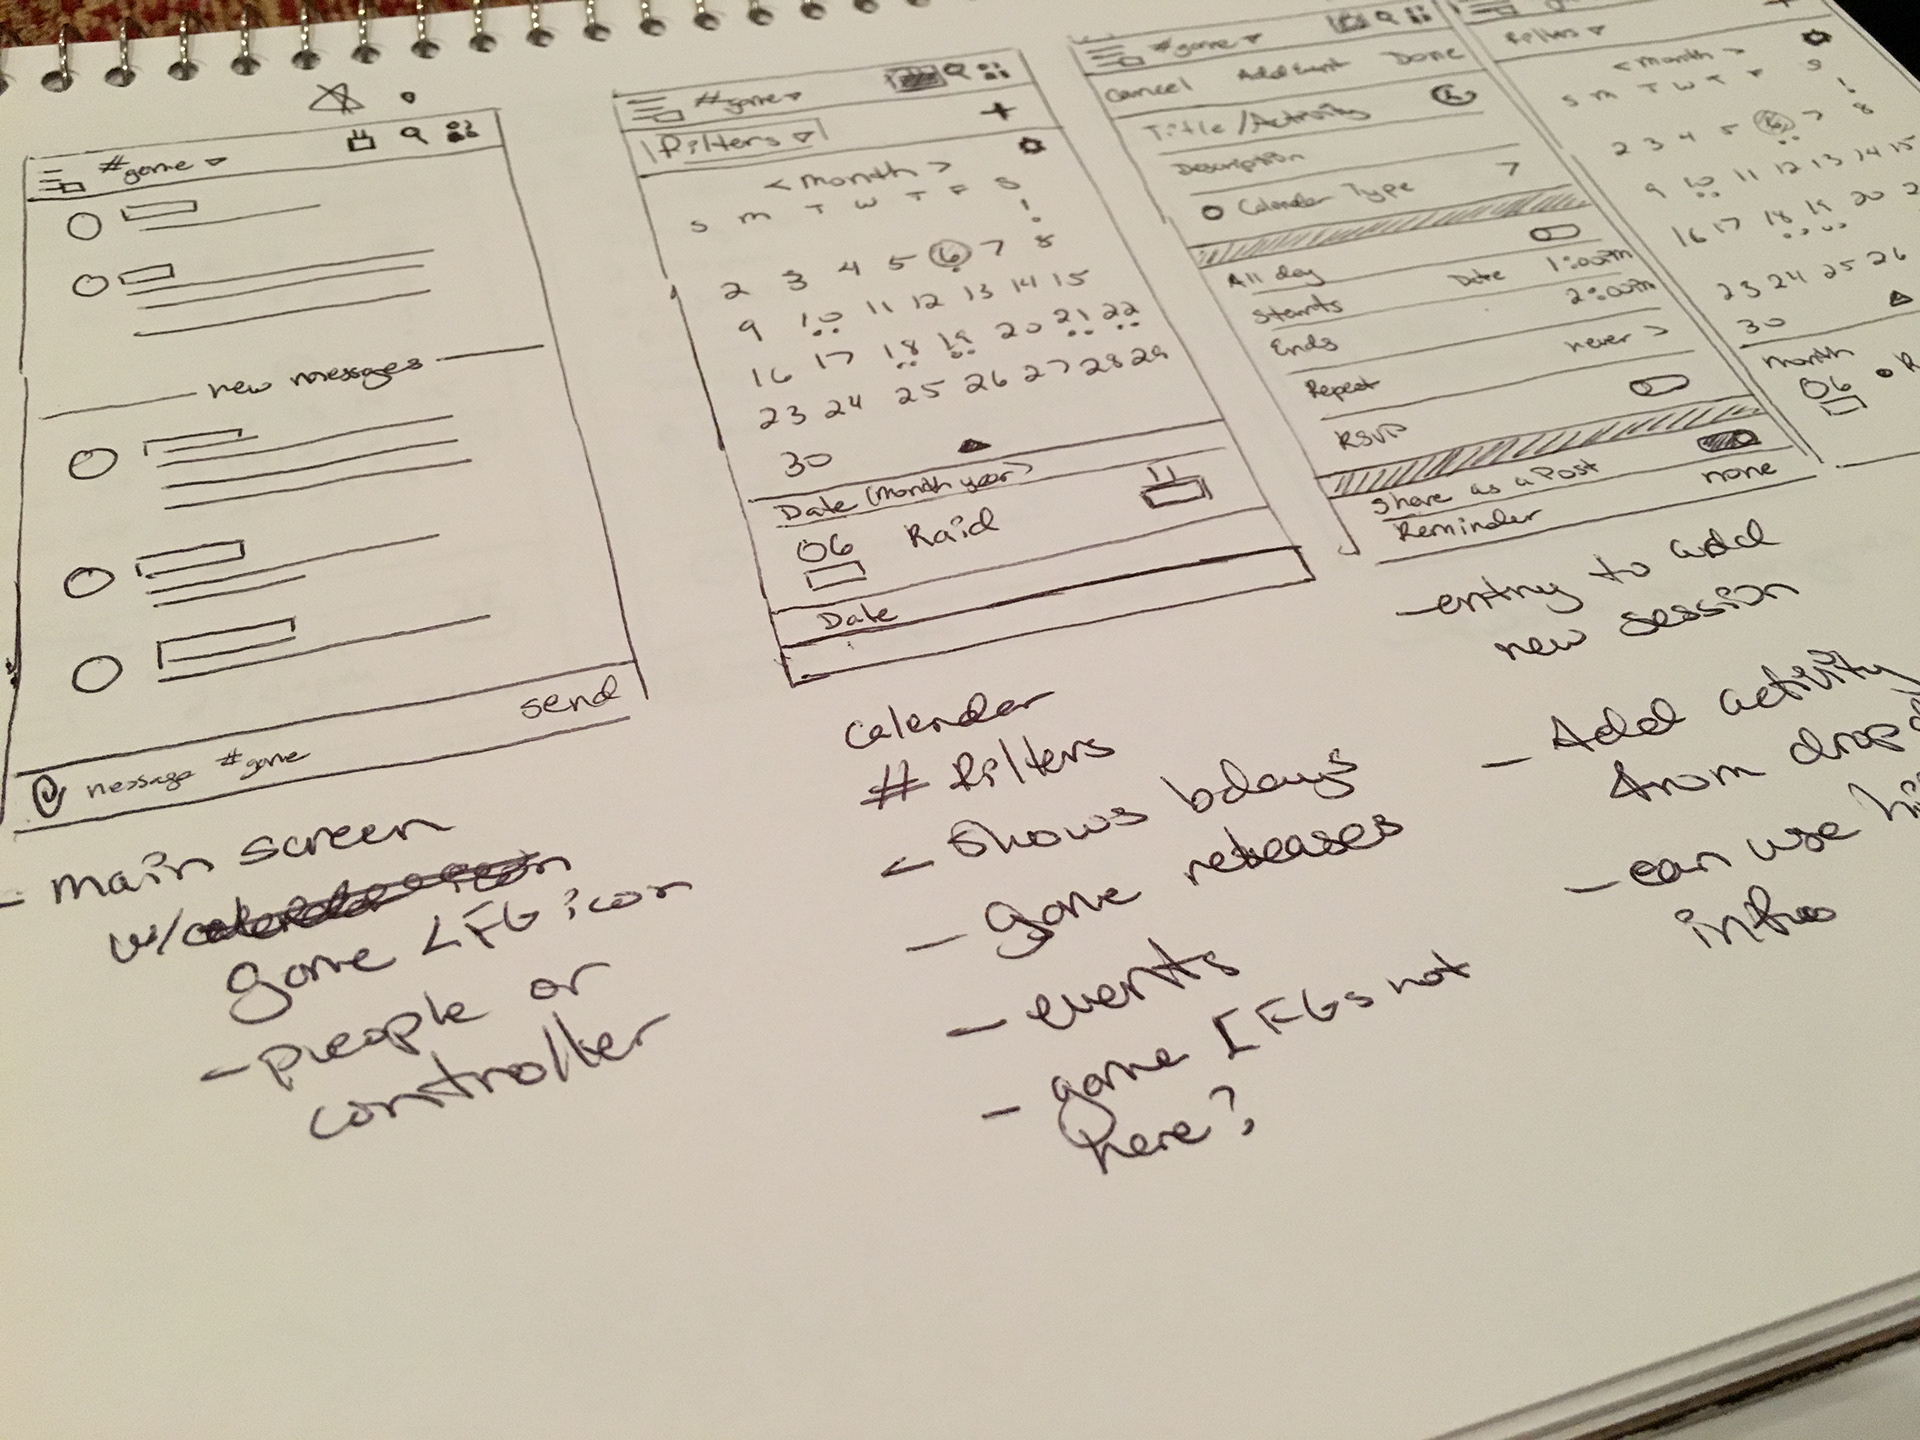 #game
new messages
send
message #game
- main screen
w/
game LFG icon
- people or
controller
#game
Filters
+
< month >
S M T W T F S
1
2 3 4 5 6 7 8
9 10 11 12 13 14 15
16 17 18 19 20 21 22
23 24 25 26 27 28 29
30
Date (Month year)
06 Raid
Date
calendar
# filters
- Shows bdays
- game releases
- events
- game LFGs not
here?
#game
Cancel Add Event Done
Title/Activity
Description
Calendar Type >
All day
Starts Date 1:00pm
Ends 2:00pm
Repeat never >
RSVP
Share as a Post
Reminder none
- entry to add
new session
- Add activity
from drop
- can use
info
+
Filters
< month >
S M T W T F S
1
2 3 4 5 6 7 8
9 10 11 12 13 14 15
16 17 18 19 20 2
23 24 25 26
30
month
06 • R